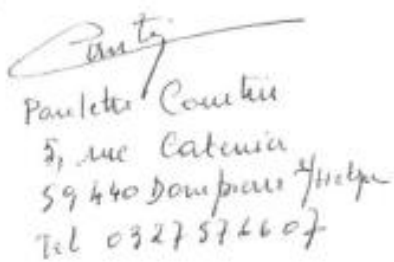 Paulette Courtin
5, rue Catenier
59440 Dompierre s/Helpe
Tel 0327576607